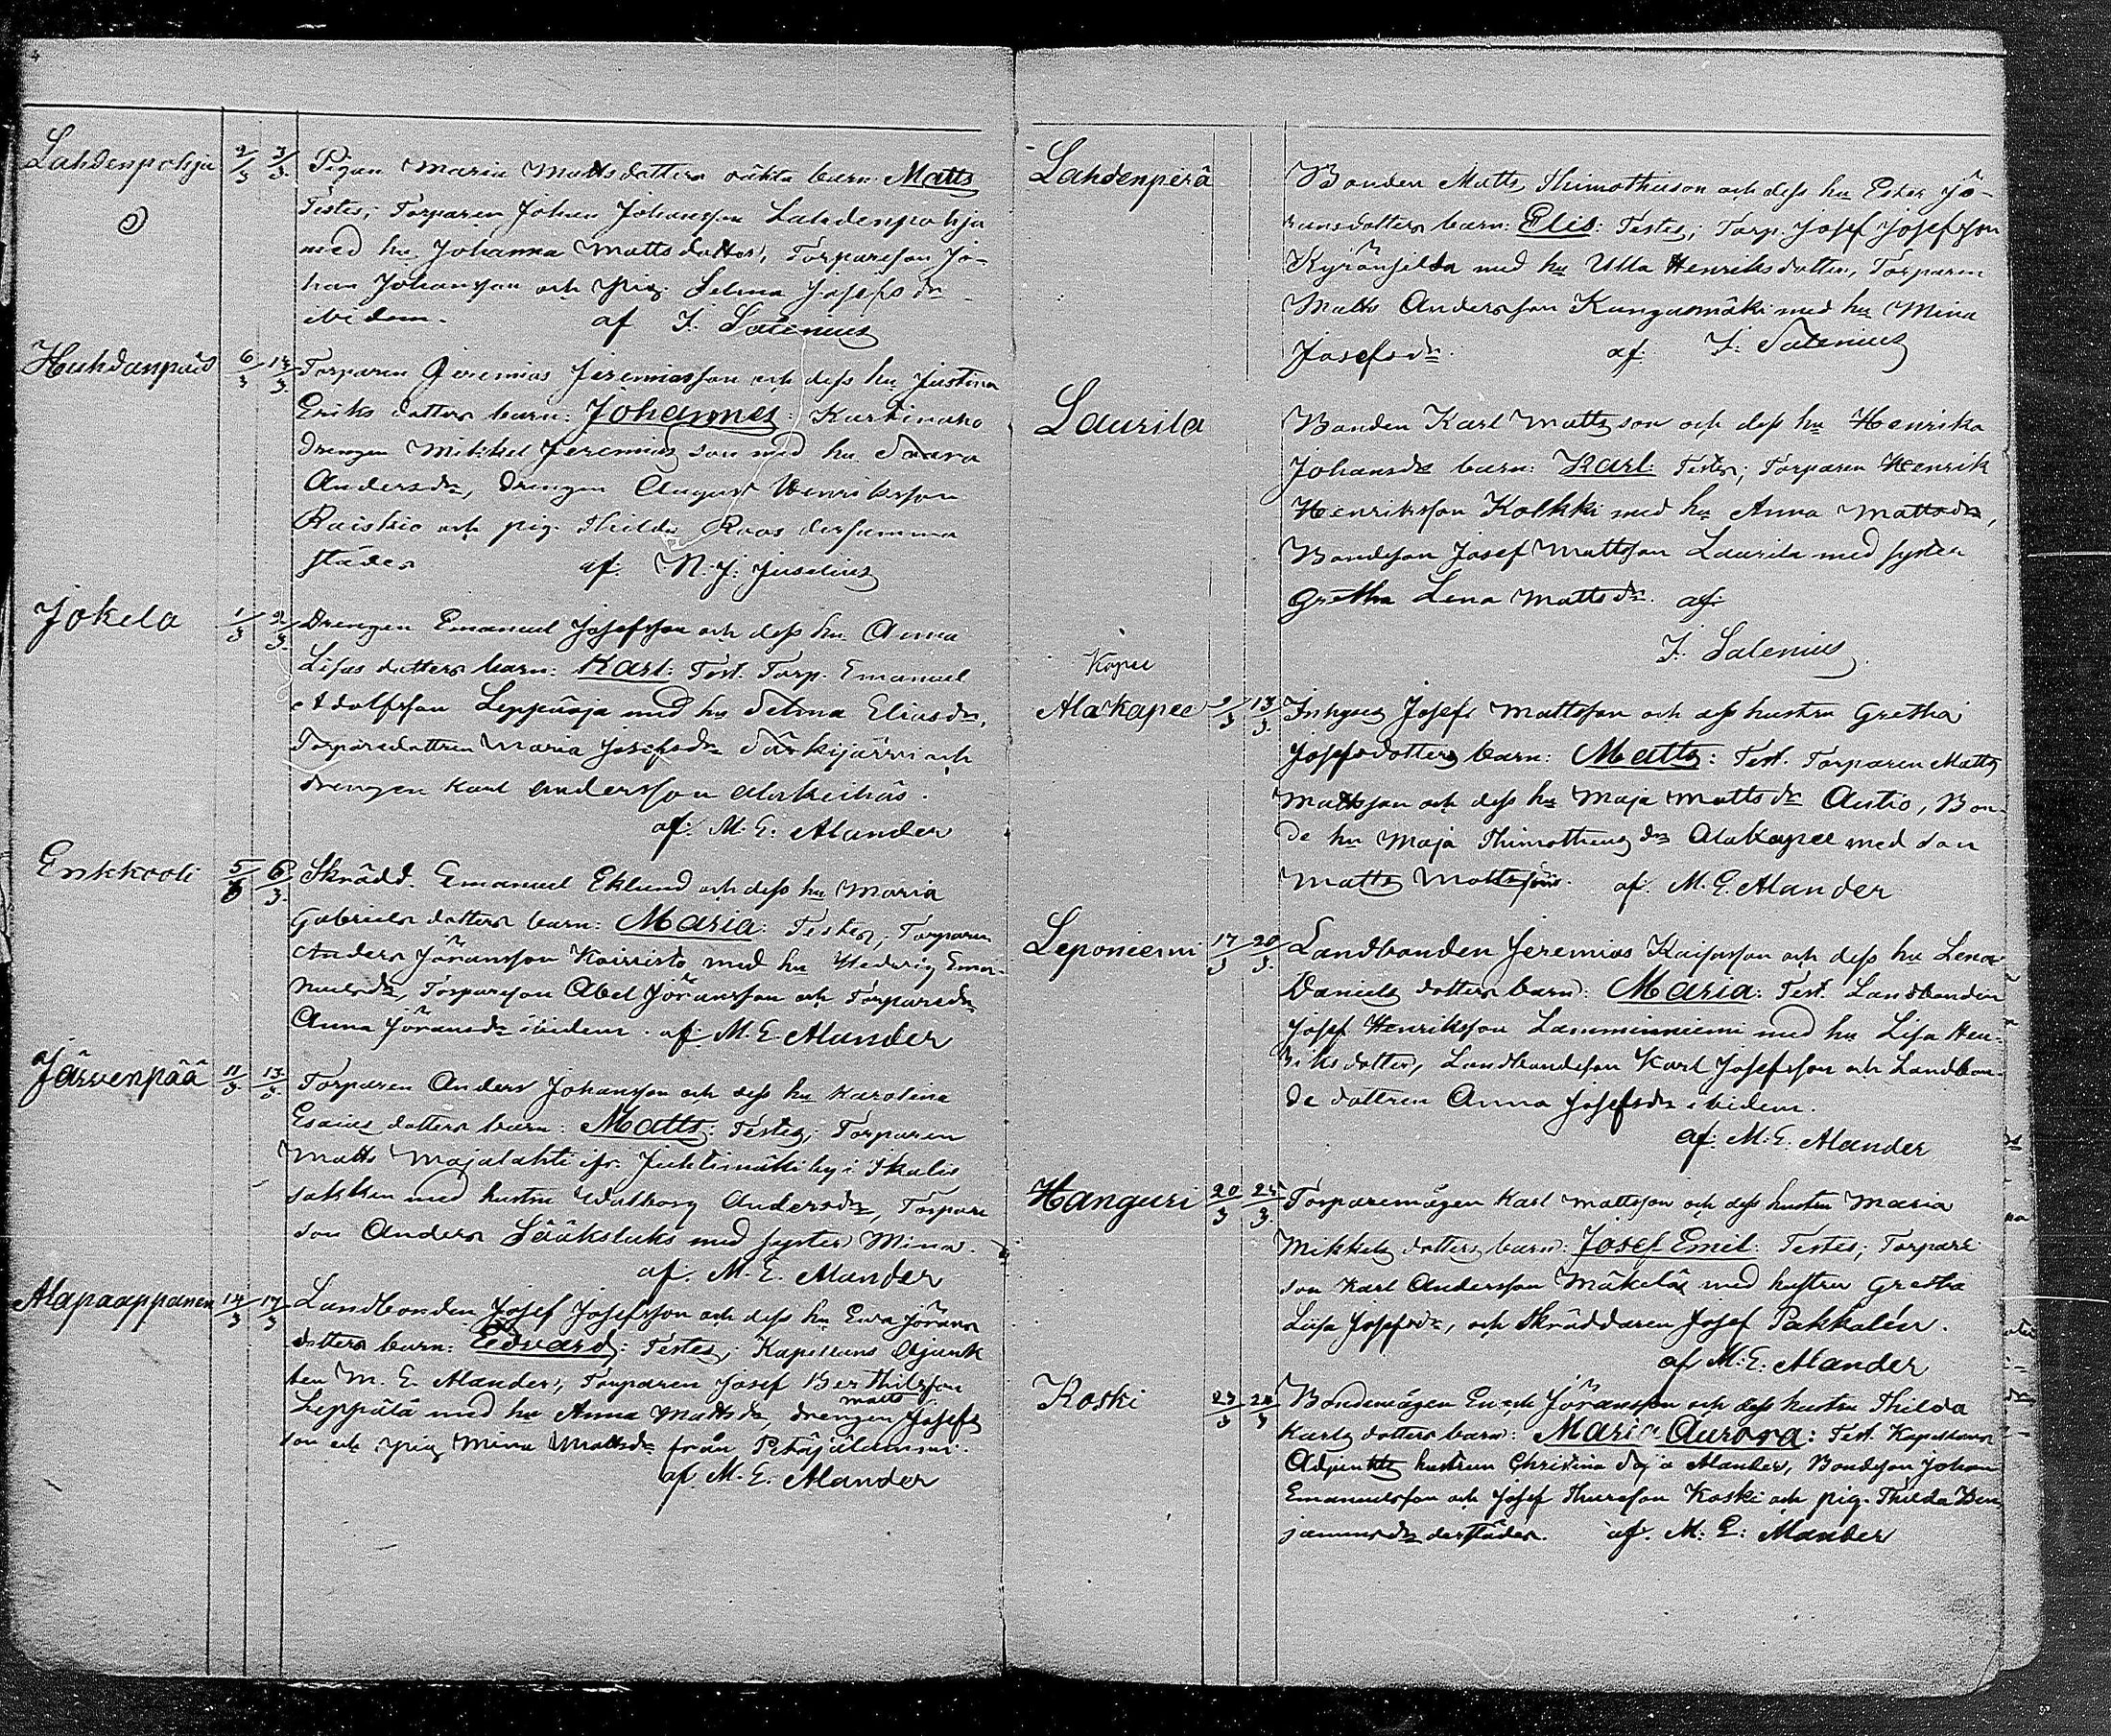 Lahdenpohja 2/3 3/3 Pigan Maria Mattsdotters oäkta barn Matts
Testes; Torparen Johan Johansson Lahdenpohja
med hu Johanna Matts dotter, Torpareson Jo-
han Johansson och pig. Selma Josefs dr
ibidem. af F. Salenius
Huhdanpää 6/3 13/3 Torparen Jeremias Jeremiasson och dess hu Justina
Eriks dotters barn: Johannes: Kurkinaho
Drengen Mikkel Jeremias son med hu Saara
Andersdr, Drengen August Henriksson
Raiskio och pig. Thilda Roos dersamma
städes af. N. J. Juselius
Jokela 1/3 2/3 Drengen Emanuel Josefsson och dess hu Anna
Lisas dotters barn: Karl: Test. Torp. Emanuel
Adolfsson Leppäoja med hu Selma Eliasdr,
Torparedottren Maria Josefsdr Särkijärvi och
drengen Karl Andersson
af. M. E. Alander
Erikkooli 5/3 6/3 Skrädd. Emanuel Eklund och dess hu Maria
Gabriels dotters barn: Maria: Testes; Torparen
Anders Jöransson Koivisto med hu Hedvig Ema-
nuelsdr, Torpareson Abel Jöransson och Torparedr
Anna Jöransdr ibidem. af. M. E. Alander
Järvenpää 11/3 13/3 Torparen Anders Johansson och dess hu Karolina
Esaias dotters barn: Matts: Testes; Torparen
Matts Majalahti ifr. Juhtimäki by i Ikalis
sokken med hustru Walborg Andersdr, Torpare
son Anders Sääksluks med syster Mina.
af. M. E. Alander
Alapaappanen 14/3 17/3 Landbonden Josef Josefsson och dess hu Eva Jörans
dotters barn: Edvard: Testes; Kapellans Adjunk
ten M. E. Alander, Torparen Josef Berthilsson
Leppälä med hu Anna Mattsdr, drengen Matts Josefs
son och pig Mina Mattsdr från
af. M. E. Alander
Lahdenperä Bonden Matts Thimotheuson och dess hu Ester Jö-
ransdotters barn: Elis: Testes; Torp. Josef Josefsson
Kyrönselkä med hu Ulla Henriksdotter, Torparen
Matts Andersson Kangasmäki med hu Mina
Josefsdr. af. F. Salenius
Laurila Bonden Karl Mattsson och dess hu Henrika
Johansdr barn: Karl: Testes; Torparen Henrik
Henriksson Kolkki med hu Anna Mattsdr,
Bondeson Josef Mattsson Laurila med syster
Gretha Lena Mattsdr. af:
F. Salenius
Kapee
Alakapee 9/3 13/3 Inhyses Josef Mattsson och dess hustru Gretha
Josefsdotters barn: Matts: Test. Torparen Matts
Mattsson och dess hu Maja Mattsdr Autio, Bon-
de hu Maja Thimotheus dr Alakapee med son
Matts Mattsson. af. M. E. Alander
Leponiemi 17/3 20/3 Landbonden Jeremias Kaisasson och dess hu Lena
Daniels dotters barn: Maria: Test. Landbonden
Josef Henriksson Lamminniemi med hu Lisa Hen-
riksdotter, Landbondeson Karl Josefsson och Landbon-
de dottren Anna Josefsdr ibidem.
af: M. E. Alander
Hanguri 20/3 25/3 Torparemågen Karl Mattsson och dess hustru Maria
Mikkels dotters barn: Josef Emil: Testes; Torpare
son Karl Andersson Mäkelä med hustru Gretha
Lisa Josefsdr, och Skräddaren Josef Pakkalén.
af M. E. Alander
Koski 23/3 24/3 Bondemågen Enock Jöransson och dess hustru Thilda
Karls dotters barn: Maria Aurora: Test. Kapellans
Adjunkts hustrun Christina Alander, Bondeson Johan
Emanuelsson och Josef Thuresson Koski och pig. Thilda Ben
jaminsdr derstädes. af. M. E. Alander